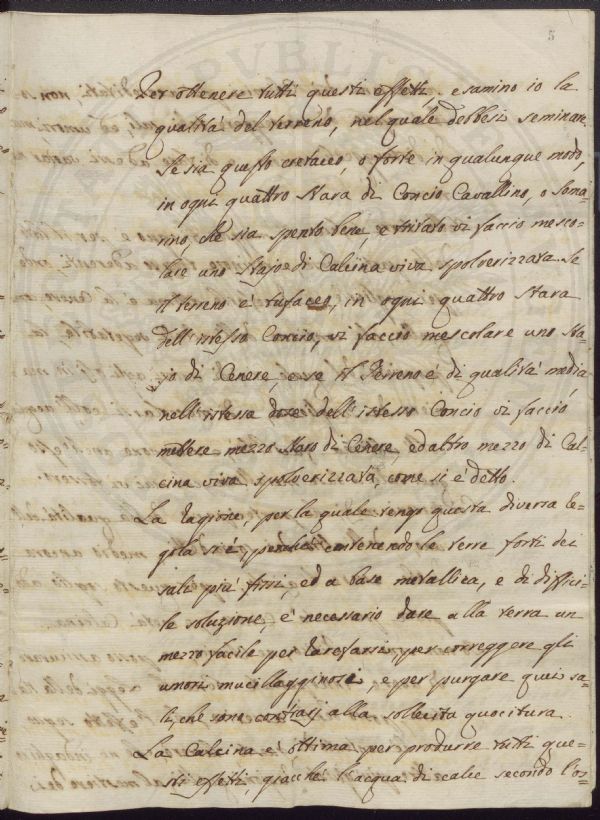 5
Per ottenere tutti questi effetti, esamino io la
qualità del terreno, nel quale debbesi seminare.
Se sia questo cretaceo, o forte in qualunque modo,
in ogni quattro Stara di Concio Cavallino, o Soma-
rino, che sia spento bene, e tritato vi faccio mesco-
lare uno Stajo di Calcina viva spolverizzata. Se
il terreno è tufaceo, in ogni quattro Stara
dell'istesso Concio, vi faccio mescolare uno Sta-
jo di Cenere, e se il Terreno è di qualità media
nell'istessa dose dell'istesso Concio vi faccio
mettere mezzo Staro di Cenere ed altro mezzo di Cal-
cina viva spolverizzata, come si è detto.
La ragione, per la quale tengo questa diversa re-
gola si è, perché contenendo le terre forti dei
sali più fissi, ed a base metallica, e di diffici-
le soluzione è necessario dare alla terra un
mezzo facile per rarefarsi, per correggere gli
umori mucillagginosi, e per purgare quei sa-
li, che sono contrarj alla sollecita quocitura.
La Calcina è ottima per produrre tutti que-
sti effetti, giacché l'acqua di calce secondo l'os-